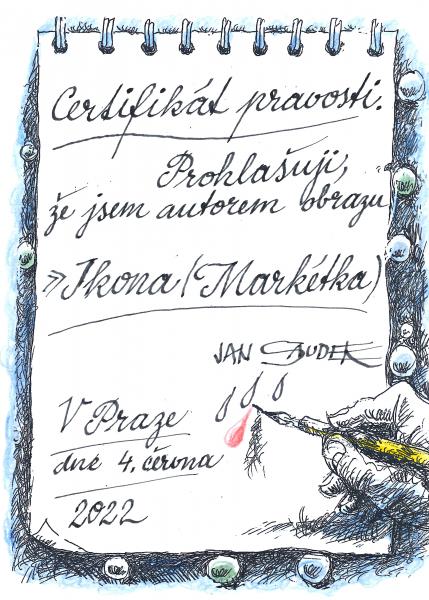 Certifikát pravosti.
Prohlašuji,
že jsem autorem obrazu
»Ikona (Markétka)
JAN SAUDEK
V Praze
dne 4. června
2022